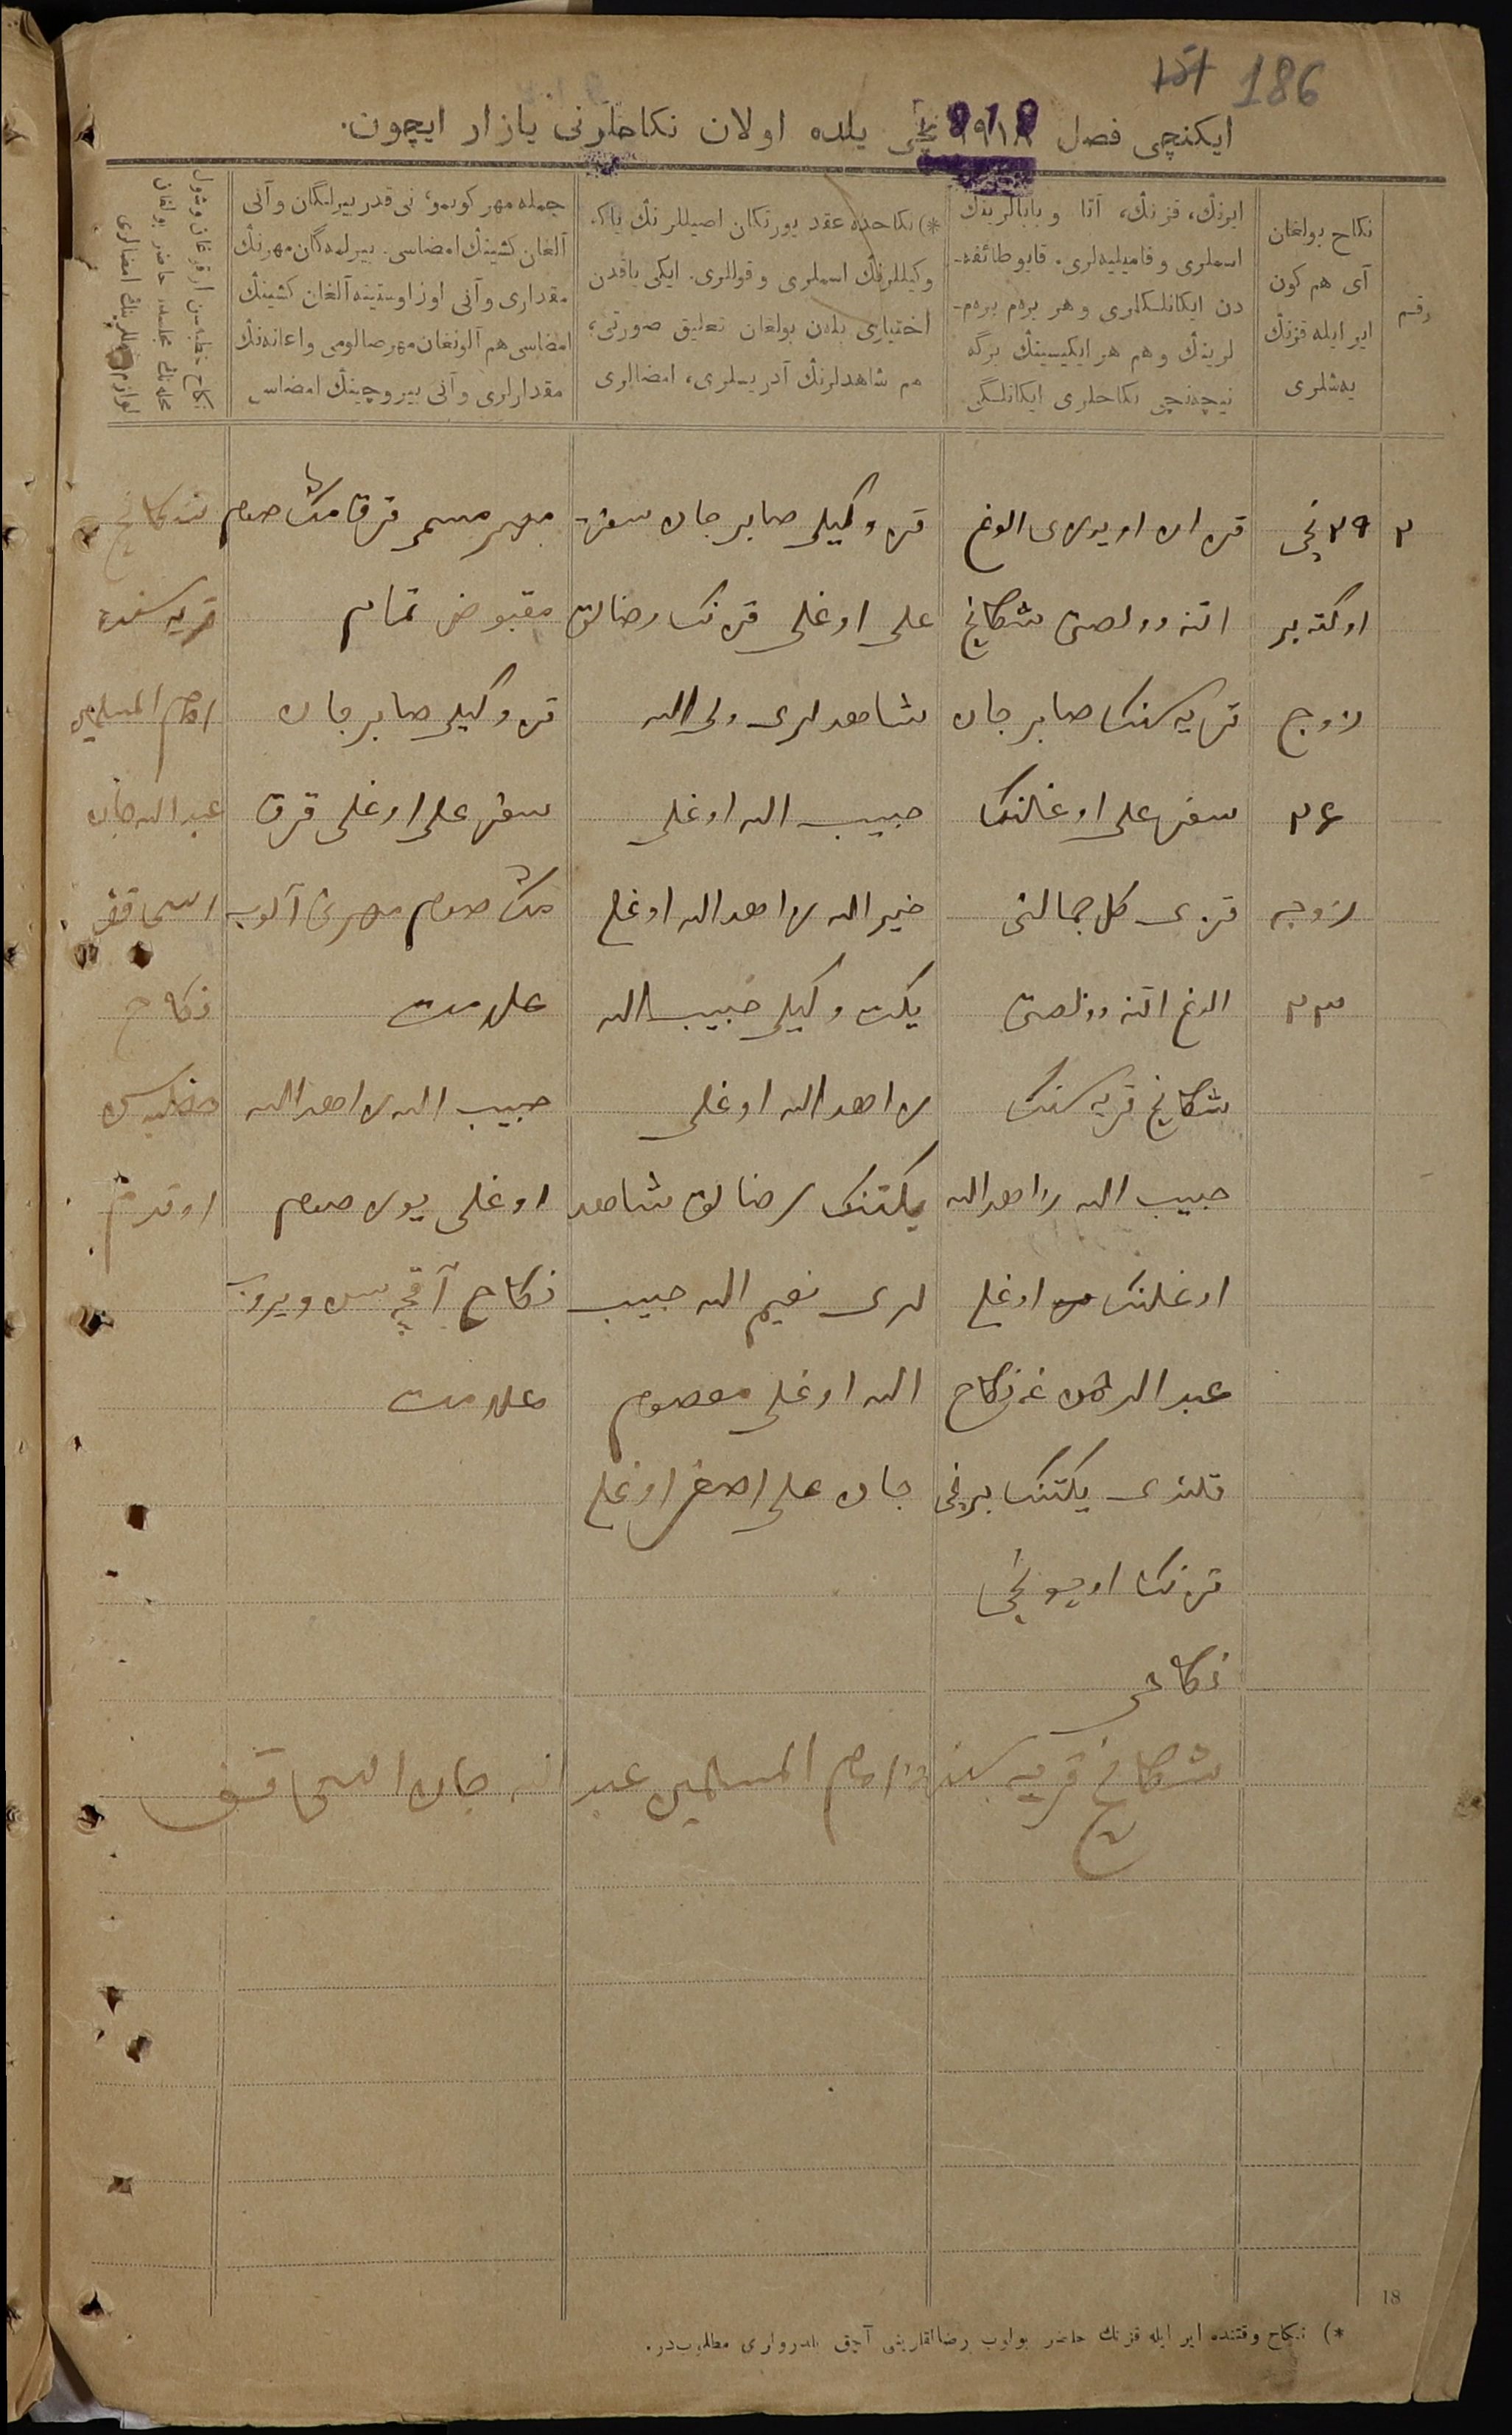 186
ایكنچی فصل ١٩١٨ نچی یلده اولان نكاحلرنی یازار ایچون.
رقم
نكاح بولغان
آی هم كون
ایر ایله قزنڭ
یه‌شلری
ایرنڭ، قزنڭ، آتا و بابالرینڭ
اسملری و فامیلیه‌لری. قایو طائفه-
دن ایكانلكلری و هر برەم برەم-
لرینڭ و هم هر ایكیسینڭ برگه
نیچه‌نچی نكاحلری ایكانلگی
*) نكاحده عقد یورتكان اصیللرنڭ یاكه
وكیللرنڭ اسملری و قوللری. ایكی یاقدن
اختیاری بلەن بولغان تعلیق صورتی،
هم شاهدلرنڭ آدریسلری، امضالری
جمله مهر كوبمو، نی قدر بیرلگان و آنی
آلغان كشینڭ امضاسی. بیرلمه‌گان مهرنڭ
مقداری و آنی اوز اوستینه آلغان كشینڭ
امضاسی هم آلونغان مهر صالومی و اعانه‌نڭ
مقدارلری و آنی بیروچینڭ امضاسی
٢
٢٩ نچی
اوكته بر
زوج
٢٤
زوجه
٢٣
الوغ
اتنه وولصتی شكانخ
قریه سنك صابر جان
سفر علی اوغلنك
قزی كل جمالنی
الوغ اتنه وولصتی
شكانخ قریه سنك
حبیب الله زاهدالله
اوغلنك اوغلی
عبد الرحمن غه نكاح
قلندی یكتنك برنچی
قزنك اوچونچی
نكاحی
قز وكیلی صابر جان سفر
علی اوغلی قزنك رضالق
شاهدلری ولی الله
حبیب الله اوغلی
خیرالله زاهدالله اوغلی
یكت وكیلی حبیب الله
زاهدالله اوغلی
یكتنك رضالق شاهد
لری نعیم الله حبیب
الله اوغلی معصوم
جان علی اصغر اوغلی
مهر مسمی قرق مك صوم
مقبوض تمام
قز وكیلی صابر جان
سفر علی اوغلی قرق
مك صوم مهرنی آلوب
علامت
حبیب الله زاهدالله
اوغلی یوز صوم
نكاح آقچه سن ویروب
علامت
شكانخ
قریه سنده
امام المسلمین
عبدالله جان
اسحاقف
نكاح
خطبه سن
اوقدم
شكانخ قریه سنده امام المسلمین عبدالله جان اسحاقف
18
*) نكاح وقتنده ایر ایله قزنك حاضر بولوب رضالقلرینی آچق بلدرولری مطلوب‌در.